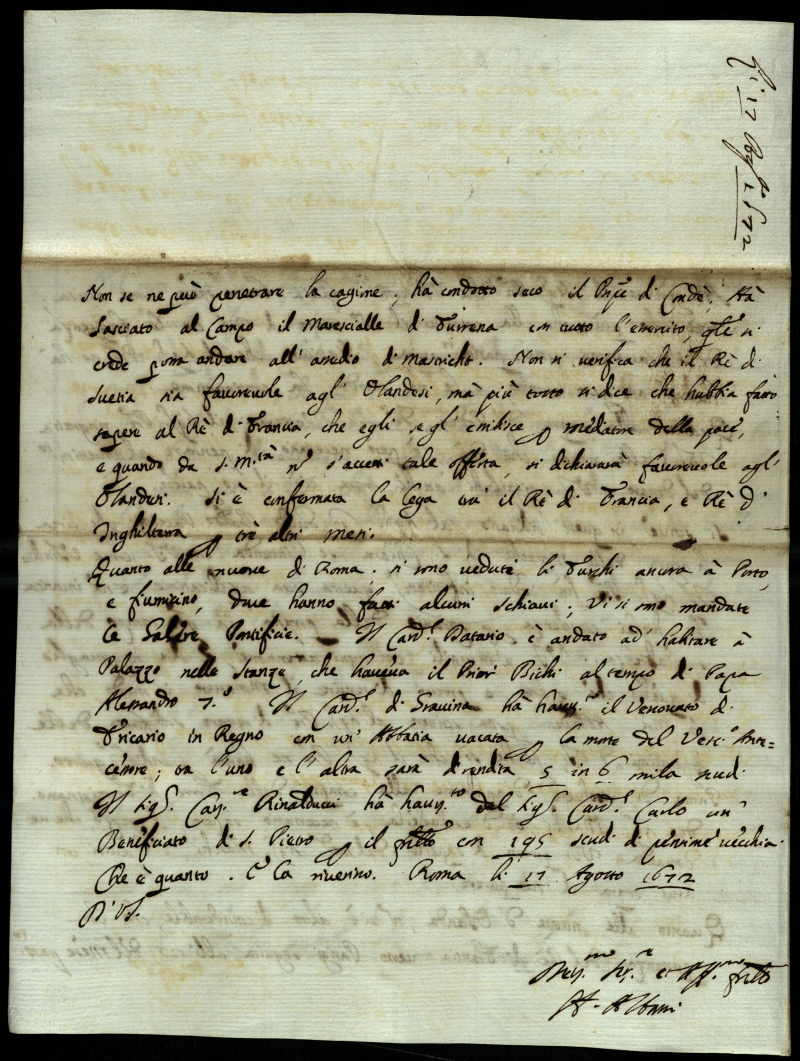 li 17 Ag.to 1672
Non se ne può penetrare la cagione, hà condotto seco il Pnpe di Condè, Hà
lasciato al Campo il Marescialle di Turrena con tutto l'esercito, qle si
crede possa andare all' assedio di Mastricht. Non si verifica che il Rè di
Suetia sia fauoreuole agl' Olandesi, mà più tosto si dice che habbia fatto
sapere al Rè di Francia, che egli se gl' esibisce p mediatore della pace,
e quando da S. M.tà nō s'accetti tale offerta, si dichiararà fauoreuole agl'
Olandesi. Si è confermata la lega trà il Rè di Francia, e Rè d'
Inghilterra p trè altri mesi.
Quanto alle nuoue di Roma, si sono vedute li Turchi ancora à Porto,
e fiumicino, doue hanno fatti alcuni schiaui; Vi si sono mandate
le Galere Pontificie. Il Card.l Datario è andato ad' habitare à
Palazzo nelle stanze, che haueua il Prior Bichi al tempo di Papa
Alessandro 7.o Il Card.l di Grauina hà hauu.to il Vescouato di
Tricario in Regno con un' Abbatia uacata p la morte del Vesc.o Ante=
cessore; tra l'uno e l'altra sarà di rendita 5 in 6 mila scudi
Il Sig.r Rinalducci hà hauu.to dal Sig.r Card.l Carlo un'
Beneficiato di S. Pietro p il fratello con 195 scudi di pensione uecchia.
Che è quanto. E la riuerisco. Roma li 17 Agosto 1672
D. V.S.
Aff.mo fratello
A. Albani